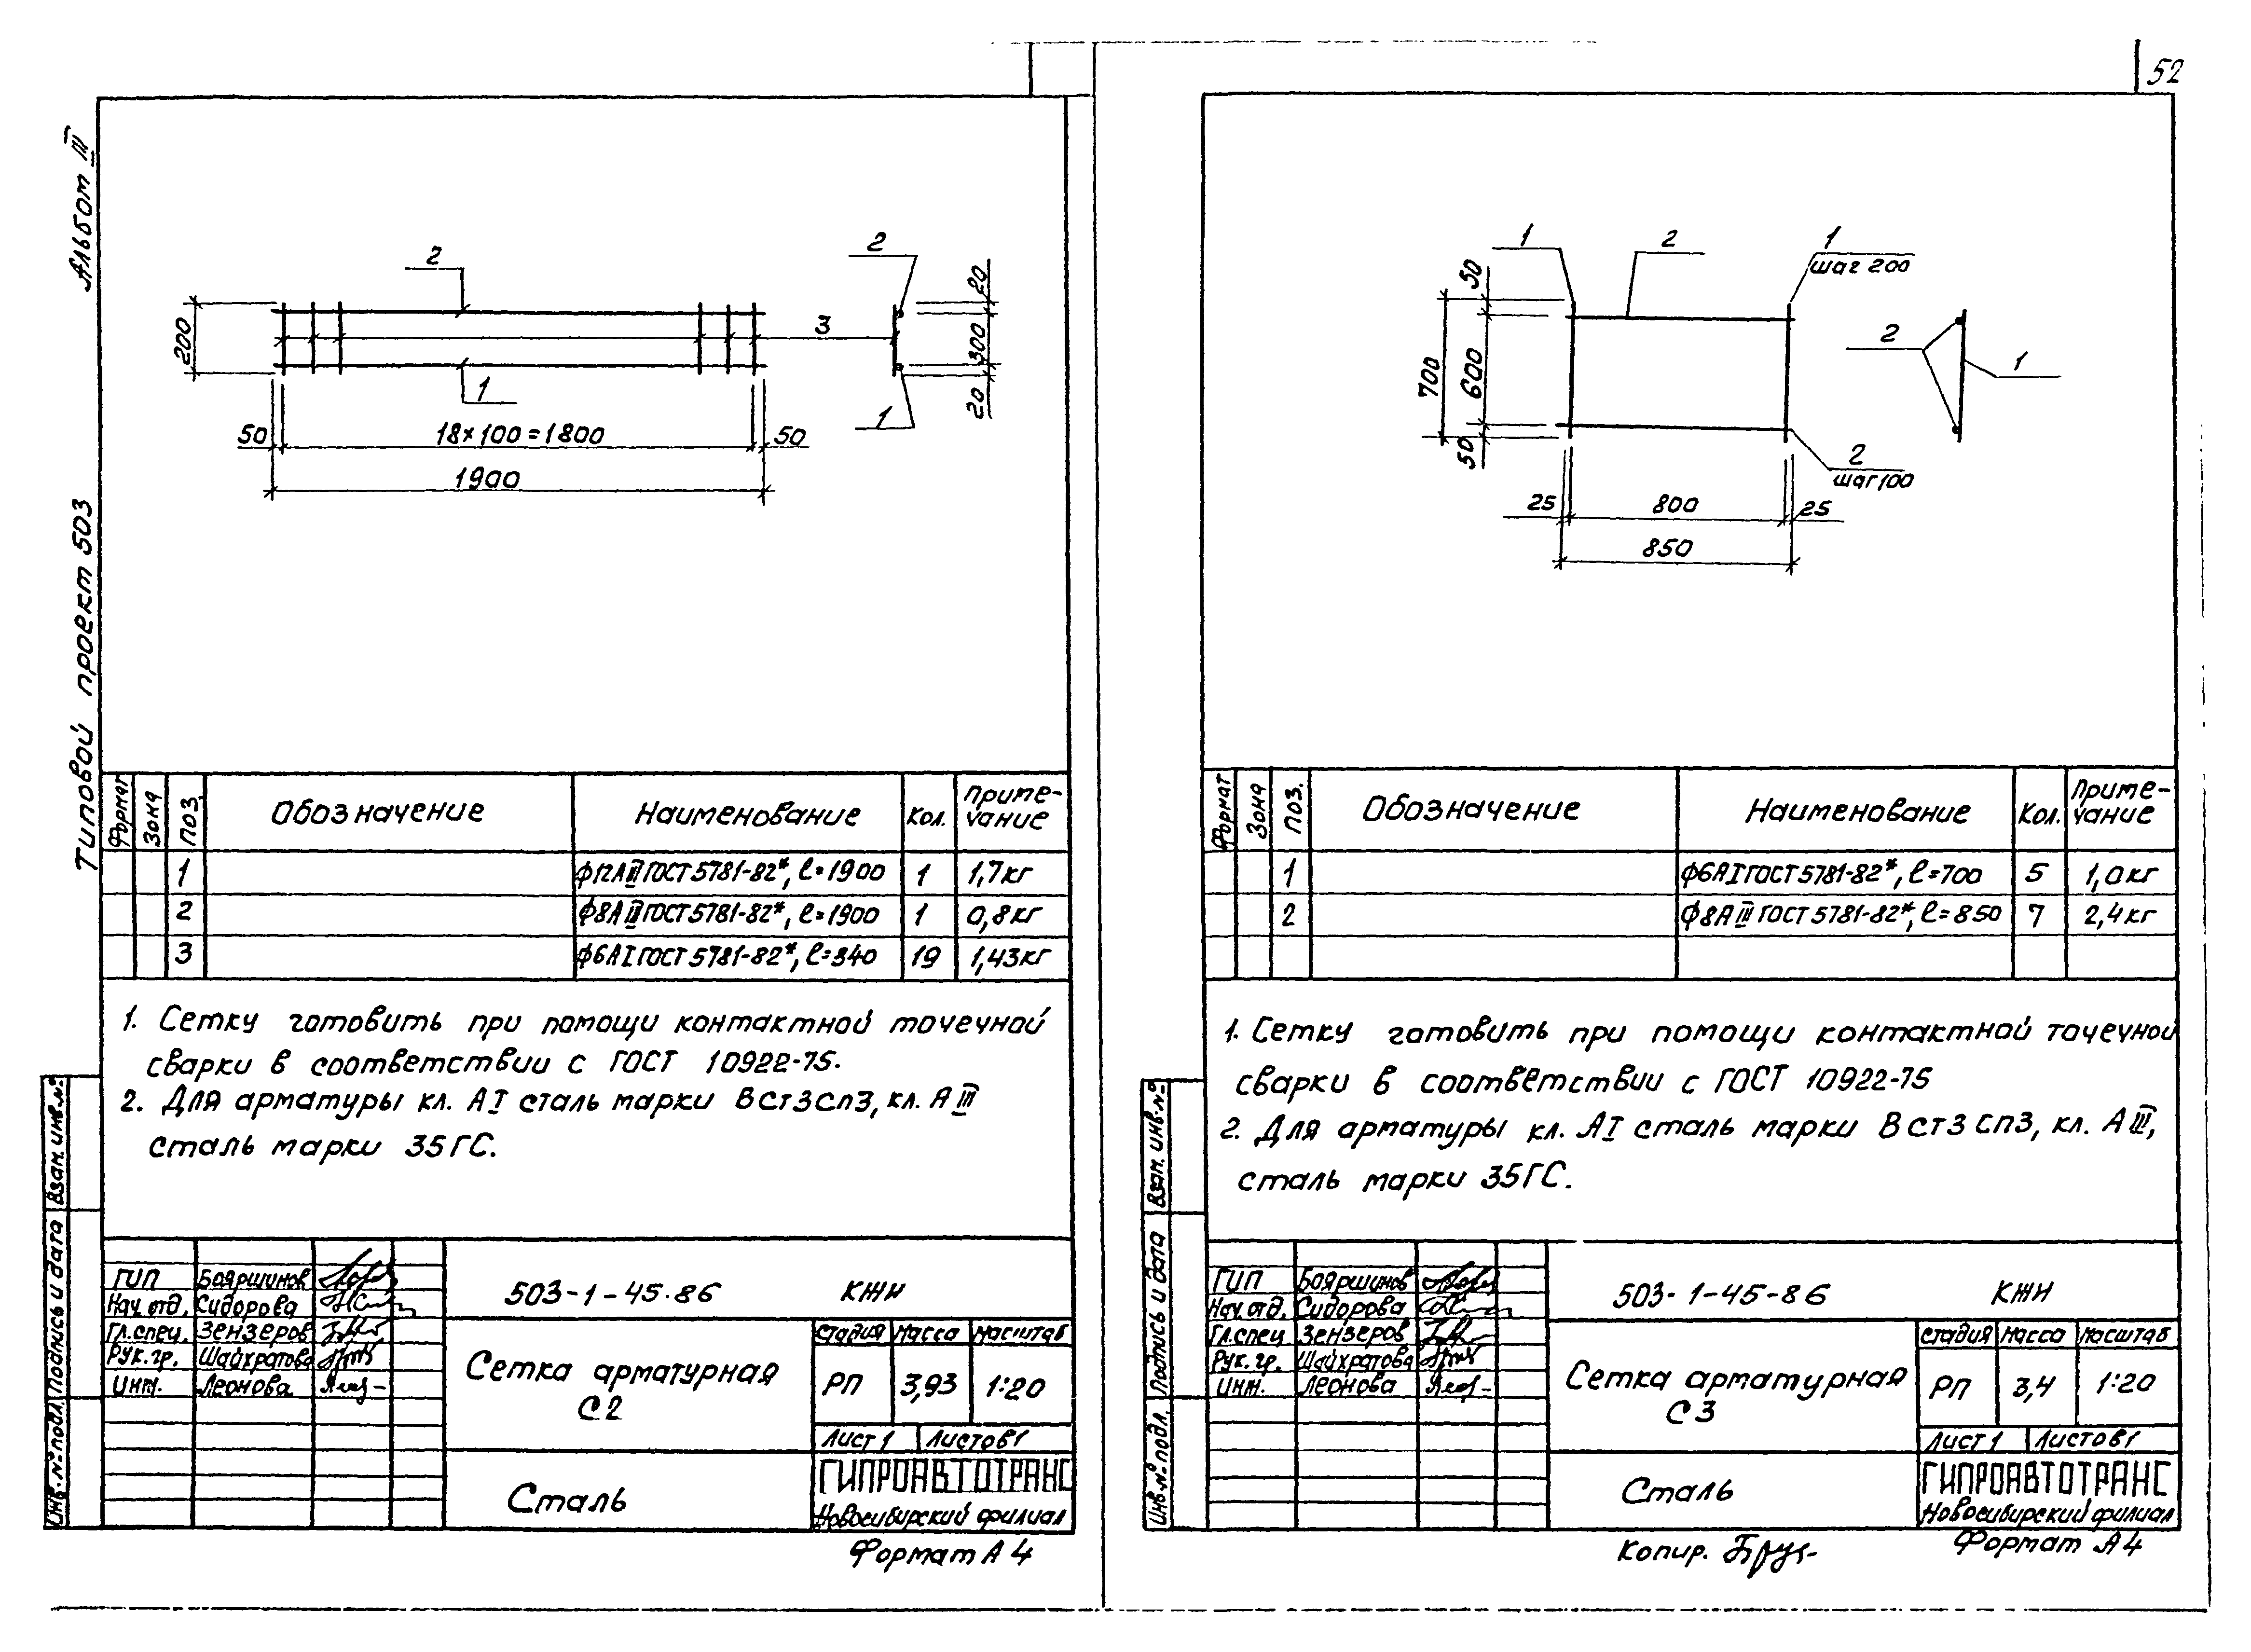 52
Альбом III
Типовой проект 503
2
2
200
3
20
300
20
1
1
50
18×100=1800
50
1900
Формат
Зона
Поз.
Обозначение
Наименование
Кол.
Приме-
чание
1
ф12АIII ГОСТ 5781-82*, ℓ=1900
1
1,7кг
2
ф8АIII ГОСТ 5781-82*, ℓ=1900
1
0,8кг
3
ф6АI ГОСТ 5781-82*, ℓ=340
19
1,43кг
1. Сетку готовить при помощи контактной точечной
сварки в соответствии с ГОСТ 10922-75.
2. Для арматуры кл. АI сталь марки ВСт3сп3, кл. АIII
сталь марки 35ГС.
Взам. инв.№
Подпись и дата
Инв.№подл.
ГИП Бояршинов
Нач.отд. Сидорова
Гл.спец. Зензеров
Рук.гр. Шайхратова
Инж. Леонова
503-1-45.86 КЖИ
Сетка арматурная
С2
Стадия Масса Масштаб
РП 3,93 1:20
Лист 1 Листов 1
Сталь
ГИПРОАВТОТРАНС
Новосибирский филиал
Формат А4
1
2
1
шаг 200
50
700
600
50
2
1
2
шаг 100
25
800
25
850
Формат
Зона
Поз.
Обозначение
Наименование
Кол.
Приме-
чание
1
ф6АI ГОСТ 5781-82*, ℓ=700
5
1,0кг
2
ф8АIII ГОСТ 5781-82*, ℓ=850
7
2,4кг
1. Сетку готовить при помощи контактной точечной
сварки в соответствии с ГОСТ 10922-75
2. Для арматуры кл. АI сталь марки ВСт3сп3, кл. АIII,
сталь марки 35ГС.
Взам. инв.№
Подпись и дата
Инв.№подл.
ГИП Бояршинов
Нач.отд. Сидорова
Гл.спец Зензеров
Рук.гр. Шайхратова
Инж. Леонова
503-1-45-86 КЖИ
Сетка арматурная
С3
Стадия Масса Масштаб
РП 3,4 1:20
Лист 1 Листов 1
Сталь
ГИПРОАВТОТРАНС
Новосибирский филиал
Копир.
Формат А4